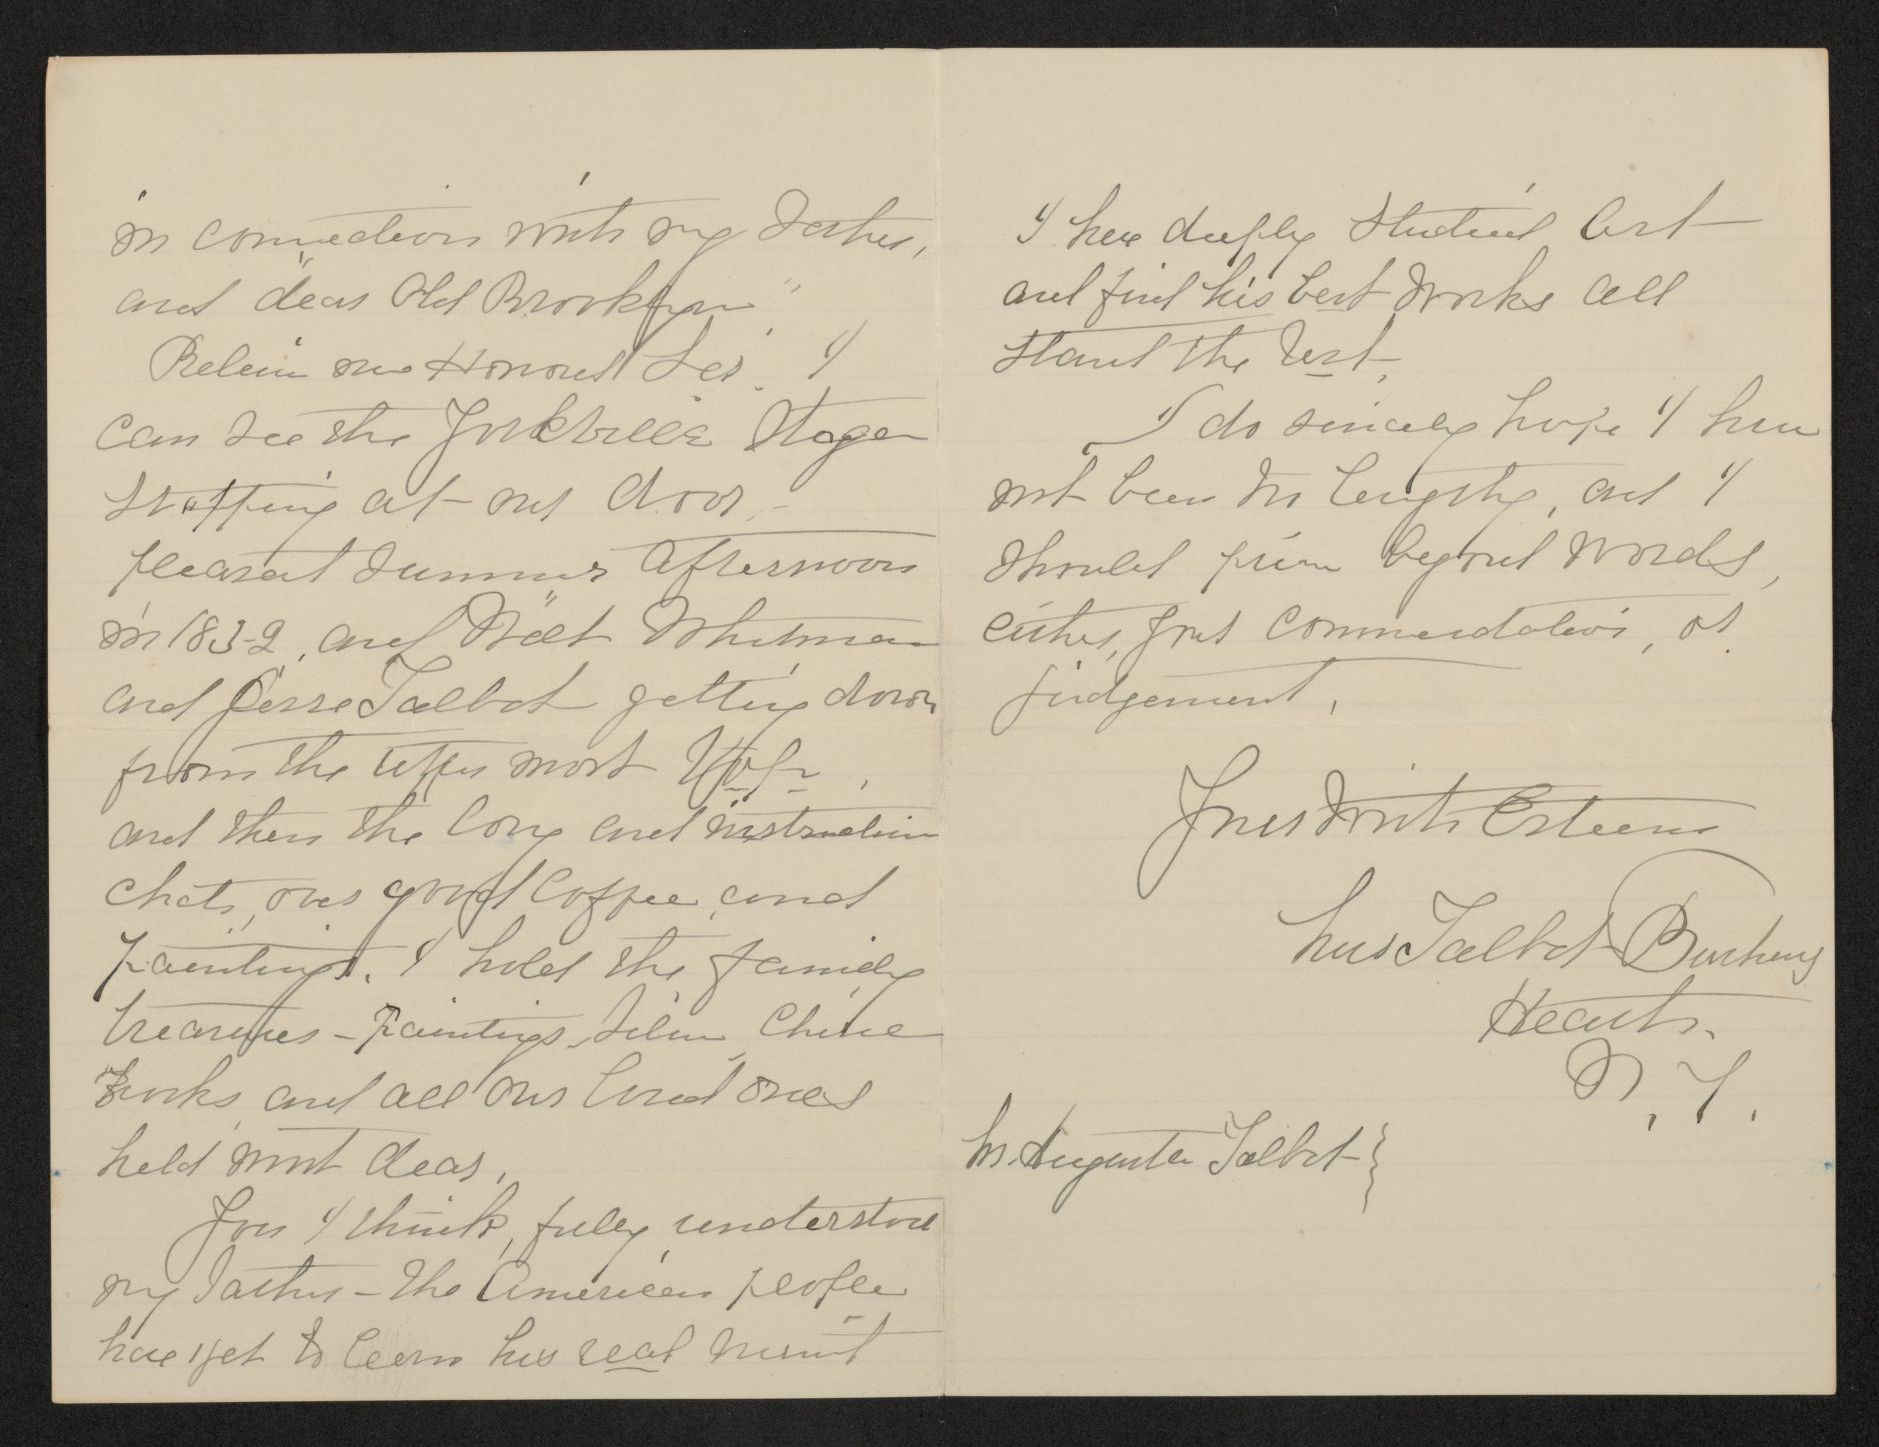 in connection with my Father,
and "dear Old Brooklyn"
Believe me Honored Sir. I
can see the Yorkville Stage
stopping at our door, -
pleasant summer afternoon
in 1832, and "Walt Whitman
and Jesse Talbot getting down
from the upper most Top,
and then the long and instructive
chats, over good Coffee, and
Paintings. I hold the family
treasures - Paintings, Silver, China
Books, and all our loved ones
held most dear,
You I think, fully understood
my Father - the American people
have yet to learn his real merit
I have deeply studied Art
and find his best works all
stand the test,
I do sincerely hope I have
not been too lengthy, and I
should prize beyond words,
either, your commendation, or
judgement,
Yours with Esteem
Mrs Talbot
Heart's.
N. Y.
M. Augusta Talbot }